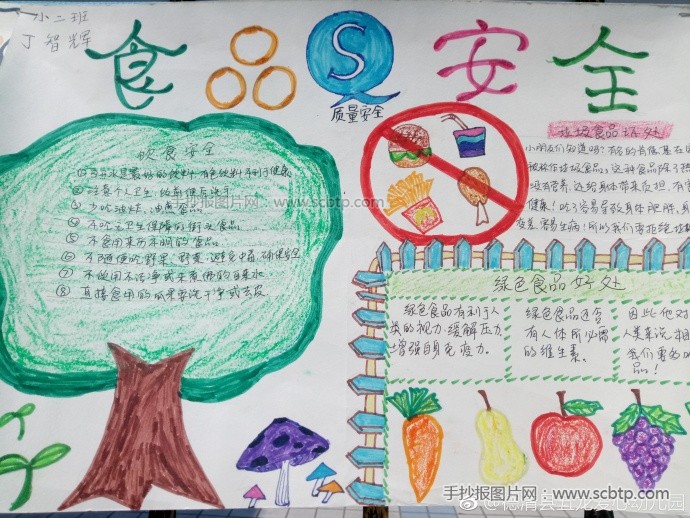 小二班
丁智辉
食品安全
S
质量安全
饮食安全
①白开水是最好的饮料,有色饮料不利于健康
②注意个人卫生,饭前便后洗手
③少吃油炸、油煎食品
④不吃无卫生保障的街头食品
⑤不食用来历不明的食品
⑥不随便吃野果、野菜,避免中毒,确保安全
⑦不饮用不洁净或未煮沸的自来水
⑧直接食用的瓜果要洗干净或去皮
垃圾食品坏处
小朋友们知道吗?有的肯德基在
被称作垃圾食品。这种食品除了
没有营养,还给身体带来负担,有
健康!吃多容易导致身体肥胖,
变差,容易生病!所以我们要拒绝垃圾
绿色食品好处
绿色食品有利于人
类的视力,缓解压力,
增强自身免疫力。
绿色食品还含
有人体所必需
的维生素。
因此他对
人类来说相
我们要
品!
手抄报图片网:www.scbtp.com
手抄报图片网:www.scbtp.com
@德清县五龙爱心幼儿园